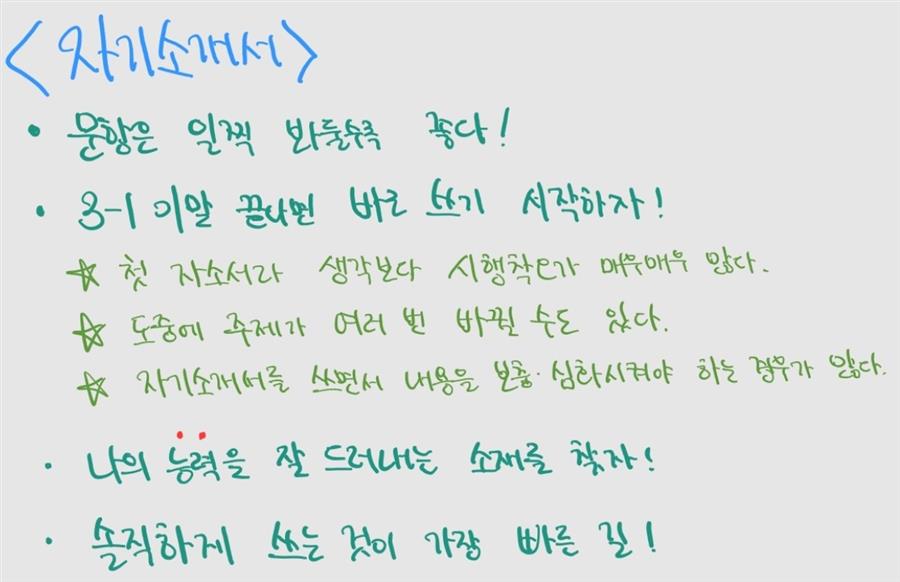 <자기소개서>
• 문항은 일찍 봐둘수록 좋다!
• 3-1 이말 끝나면 바로 쓰기 시작하자!
☆ 첫 자소서라 생각보다 시행착오가 매우매우 많다.
☆ 도중에 주제가 여러 번 바뀔 수도 있다.
☆ 자기소개서를 쓰면서 내용을 보충·심화시켜야 하는 경우가 많다.
• 나의 능력을 잘 드러내는 소재를 찾자!
• 솔직하게 쓰는 것이 가장 빠른 길!